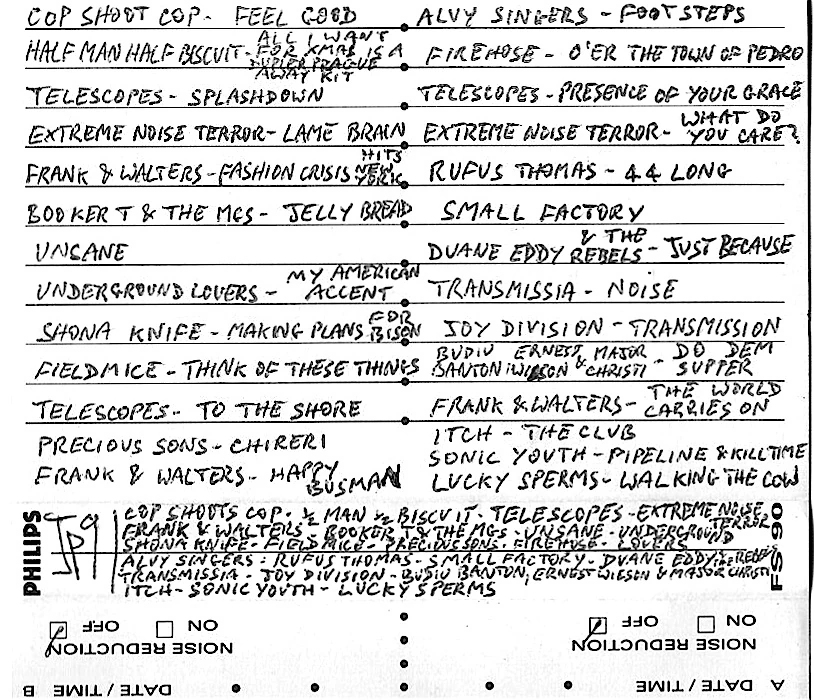 COP SHOOT COP - FEEL GOOD
HALF MAN HALF BISCUIT - ALL I WANT FOR XMAS IS A DUPLER PRAGUE AWAY KIT
TELESCOPES - SPLASHDOWN
EXTREME NOISE TERROR - LAME BRAIN
FRANK & WALTERS - FASHION CRISIS HITS NEW YORK
BOOKER T & THE MGS - JELLY BREAD
UNSANE
UNDERGROUND LOVERS - MY AMERICAN ACCENT
SHONA KNIFE - MAKING PLANS FOR BISON
FIELDMICE - THINK OF THESE THINGS
TELESCOPES - TO THE SHORE
PRECIOUS SONS - CHIRERI
FRANK & WALTERS - HAPPY BUSMAN
ALVY SINGERS - FOOTSTEPS
FIREHOSE - O'ER THE TOWN OF PEDRO
TELESCOPES - PRESENCE OF YOUR GRACE
EXTREME NOISE TERROR - WHAT DO YOU CARE?
RUFUS THOMAS - 44 LONG
SMALL FACTORY
DUANE EDDY & THE REBELS - JUST BECAUSE
TRANSMISSIA - NOISE
JOY DIVISION - TRANSMISSION
BUDIU BANTON, ERNEST WILSON & MAJOR CHRISTI - DO DEM SUPPER
FRANK & WALTERS - THE WORLD CARRIES ON
ITCH - THE CLUB
SONIC YOUTH - PIPELINE & KILLTIME
LUCKY SPERMS - WALKING THE COW
PHILIPS
JP9
COP SHOOTS COP - ½ MAN ½ BISCUIT - TELESCOPES - EXTREME NOISE TERROR
FRANK & WALTERS - BOOKER T & THE MGS - UNSANE - UNDERGROUND LOVERS
SHONA KNIFE - FIELDMICE - PRECIOUS SONS - FIREHOSE
ALVY SINGERS - RUFUS THOMAS - SMALL FACTORY - DUANE EDDY & THE REBELS
TRANSMISSIA - JOY DIVISION - BUDIU BANTON, ERNEST WILSON & MAJOR CHRISTI
ITCH - SONIC YOUTH - LUCKY SPERMS
FS 90
A DATE / TIME
NOISE REDUCTION
ON OFF
B DATE / TIME
NOISE REDUCTION
ON OFF